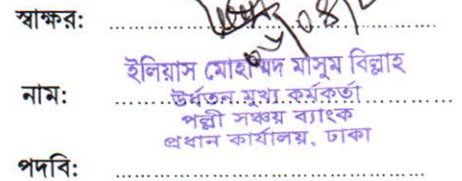 স্বাক্ষর: ........................................
ইলিয়াস মোহাম্মদ মাসুম বিল্লাহ
নাম: ........................................
উর্ধতন মুখ্য কর্মকর্তা
পল্লী সঞ্চয় ব্যাংক
প্রধান কার্যালয়, ঢাকা
পদবি: ........................................